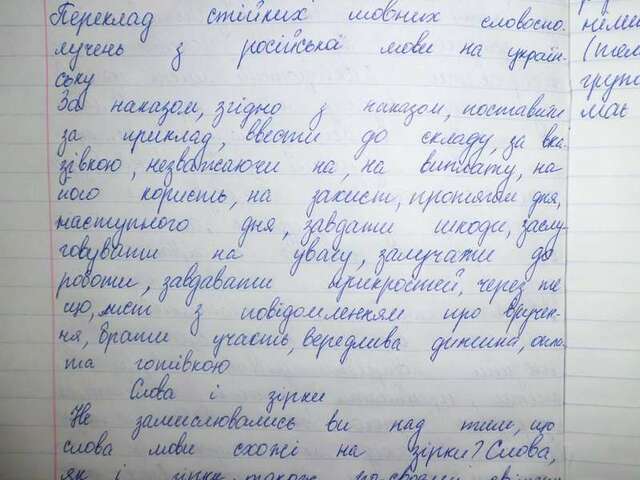 Переклад стійких мовних словоспо-
лучень з російська мови на україн-
ську
За наказом, згідно з наказом, поставити
за приклад, ввести до складу, за вка-
зівкою, незважаючи на, на виплату, на
його користь, на захист, протягом дня,
наступного дня, завдати шкоди, заслу-
говувати на увагу, залучати до
роботи, завдавати прикростей, через те
що, лист з повідомленням про вручен-
ня, брати участь, вередлива дитина, опла-
та готівкою
Слова і зірки
Не замислювались ви над тим, що
слова мови схожі на зірки? Слова,
як і зірки, також
неми
(тем
груп
має